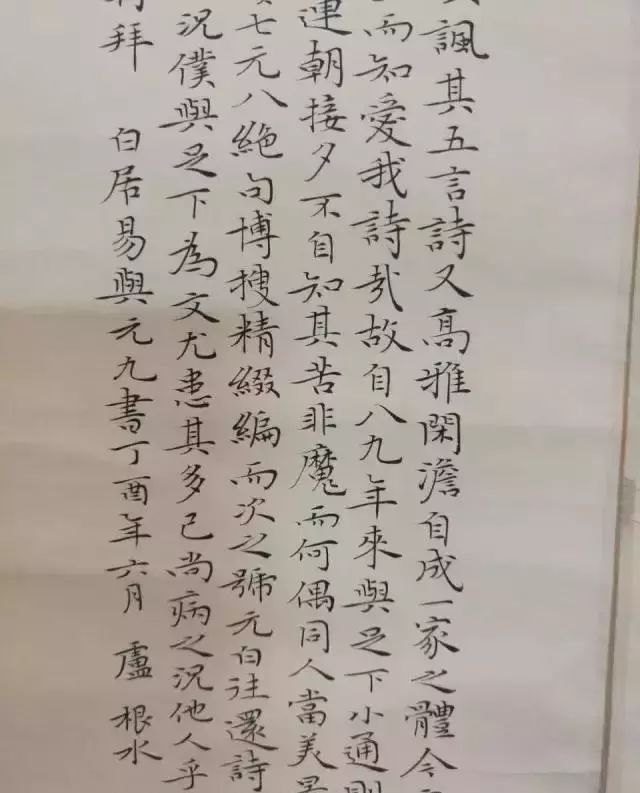 諷其五言詩又高雅閑澹自成一家之體今
而知愛我詩哉故自八九年來與足下小通則
連朝接夕不自知其苦非魔而何偶同人當美
七元八絶句博搜精綴編而次之號元白往還詩
況僕與足下為文尤患其多己尚病之況他人乎
拜 白居易與元九書丁酉年六月 盧根水